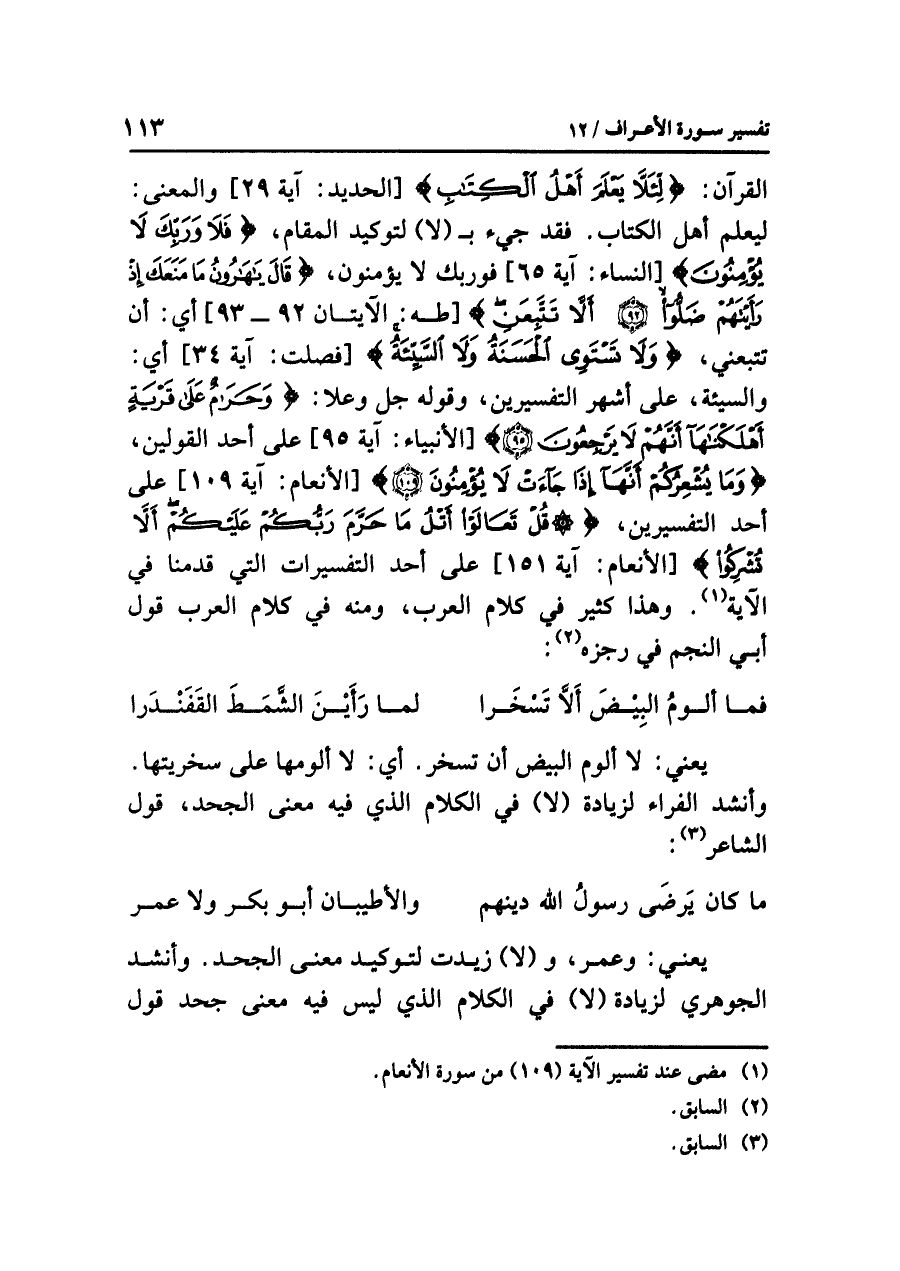 تفسير سورة الأعراف / ١٢ ١١٣
القرآن: ﴿لِّئَلَّا يَعْلَمَ أَهْلُ ٱلْكِتَٰبِ﴾ [الحديد: آية ٢٩] والمعنى:
ليعلم أهل الكتاب. فقد جيء بـ (لا) لتوكيد المقام، ﴿فَلَا وَرَبِّكَ لَا
يُؤْمِنُونَ﴾ [النساء: آية ٦٥] فوربك لا يؤمنون، ﴿قَالَ يَٰهَٰرُونُ مَا مَنَعَكَ إِذْ
رَأَيْتَهُمْ ضَلُّوٓا۟ ۝٩٢ أَلَّا تَتَّبِعَنِ ۖ﴾ [طـه: الآيتان ٩٢ ـ ٩٣] أي: أن
تتبعني، ﴿وَلَا تَسْتَوِى ٱلْحَسَنَةُ وَلَا ٱلسَّيِّئَةُ ۚ﴾ [فصلت: آية ٣٤] أي:
والسيئة، على أشهر التفسيرين، وقوله جل وعلا: ﴿وَحَرَٰمٌ عَلَىٰ قَرْيَةٍ
أَهْلَكْنَٰهَآ أَنَّهُمْ لَا يَرْجِعُونَ ۝٩٥﴾ [الأنبياء: آية ٩٥] على أحد القولين،
﴿وَمَا يُشْعِرُكُمْ أَنَّهَآ إِذَا جَآءَتْ لَا يُؤْمِنُونَ ۝١٠٩﴾ [الأنعام: آية ١٠٩] على
أحد التفسيرين، ﴿۞ قُلْ تَعَالَوْا۟ أَتْلُ مَا حَرَّمَ رَبُّكُمْ عَلَيْكُمْ ۖ أَلَّا
تُشْرِكُوا۟﴾ [الأنعام: آية ١٥١] على أحد التفسيرات التي قدمنا في
الآية(١). وهذا كثير في كلام العرب، ومنه في كلام العرب قول
أبـي النجم في رجزه(٢):
فمـا ألـومُ البِيْـضَ ألَّا تَسْخَـرا لمـا رَأَيْـنَ الشَّمَـطَ القَفَنْـدَرا
يعني: لا ألوم البيض أن تسخر. أي: لا ألومها على سخريتها.
وأنشد الفراء لزيادة (لا) في الكلام الذي فيه معنى الجحد، قول
الشاعر(٣):
ما كان يَرضَى رسولُ الله دينهم والأطيبـان أبـو بكـر ولا عمـر
يعنـي: وعمـر، و (لا) زيـدت لتـوكيـد معنـى الجحـد. وأنشـد
الجوهري لزيادة (لا) في الكلام الذي ليس فيه معنى جحد قول
(١) مضى عند تفسير الآية (١٠٩) من سورة الأنعام.
(٢) السابق.
(٣) السابق.